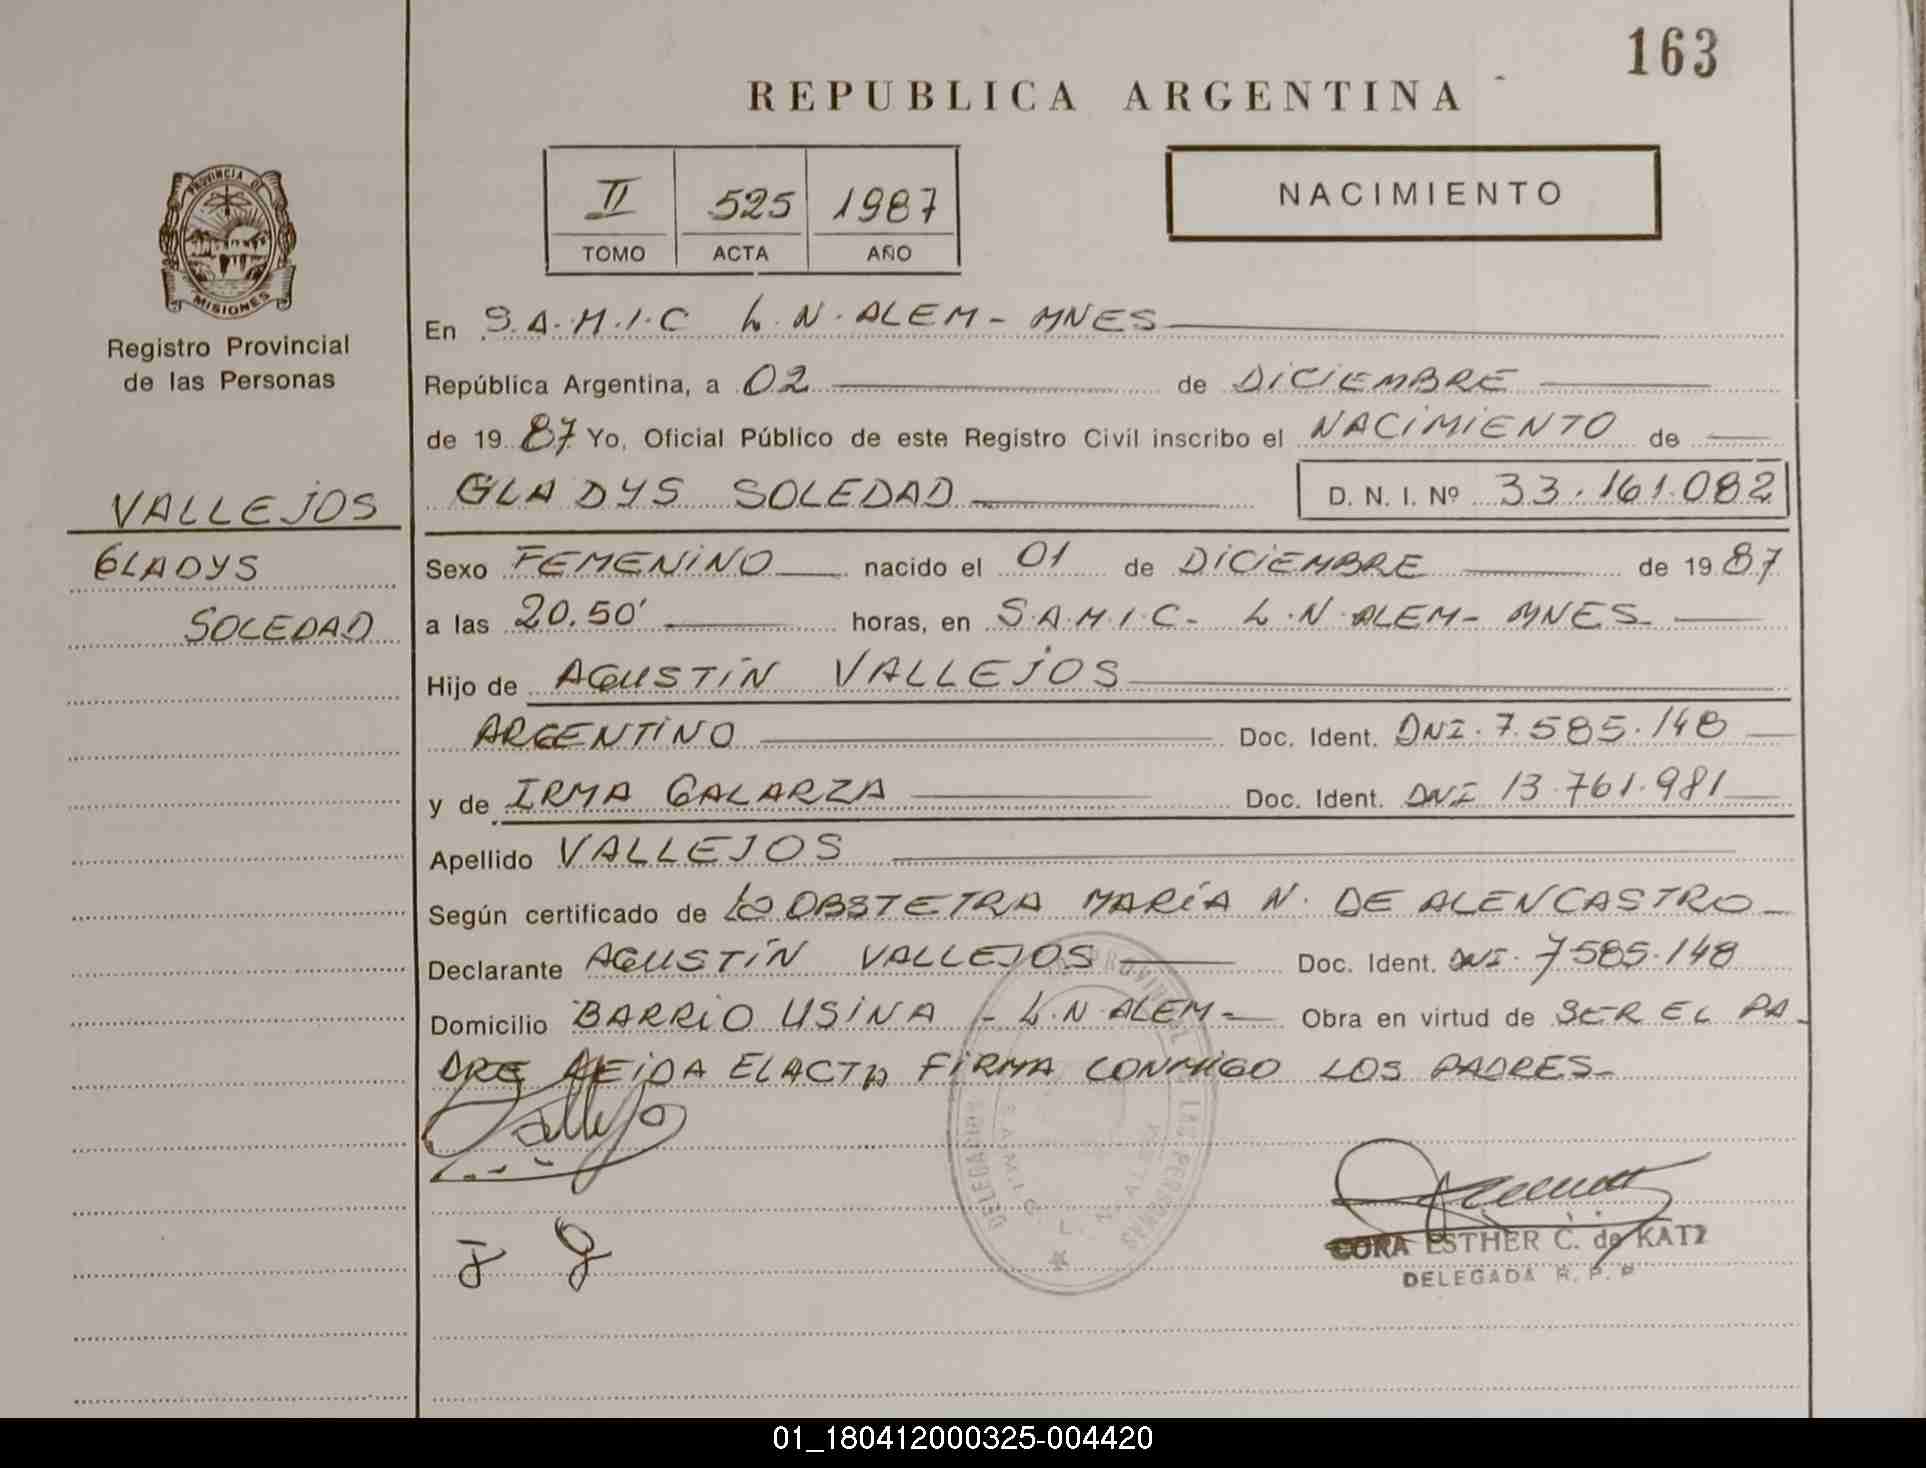 163
REPUBLICA ARGENTINA
II 525 1987
TOMO ACTA AÑO
NACIMIENTO
PROVINCIA DE
MISIONES
Registro Provincial
de las Personas
VALLEJOS
GLADYS
SOLEDAD
En S.A.M.I.C L.N.ALEM - MNES
República Argentina, a 02 de DICIEMBRE
de 19 87 Yo, Oficial Público de este Registro Civil inscribo el NACIMIENTO de
GLADYS SOLEDAD D. N. I. Nº 33.161.082
Sexo FEMENINO nacido el 01 de DICIEMBRE de 19 87
a las 20.50' horas, en S.A.M.I.C- L.N.ALEM- MNES
Hijo de AGUSTÍN VALLEJOS
ARGENTINO Doc. Ident. DNI.7.585.148
y de IRMA GALARZA Doc. Ident. DNI 13.761.981
Apellido VALLEJOS
Según certificado de LO OBSTETRA MARÍA N. DE ALENCASTRO
Declarante AGUSTÍN VALLEJOS Doc. Ident. DNI.7585.148
Domicilio BARRIO USINA - L.N.ALEM - Obra en virtud de SER EL PA-
DRE LEIDA EL ACTA FIRMA CONMIGO LOS PADRES-
Vallejo
DELEGACION LAS PERSONAS
S.A.M.I.C. L.N.ALEM
J G
CORA ESTHER C. de KATZ
DELEGADA R. P. P
01_180412000325-004420